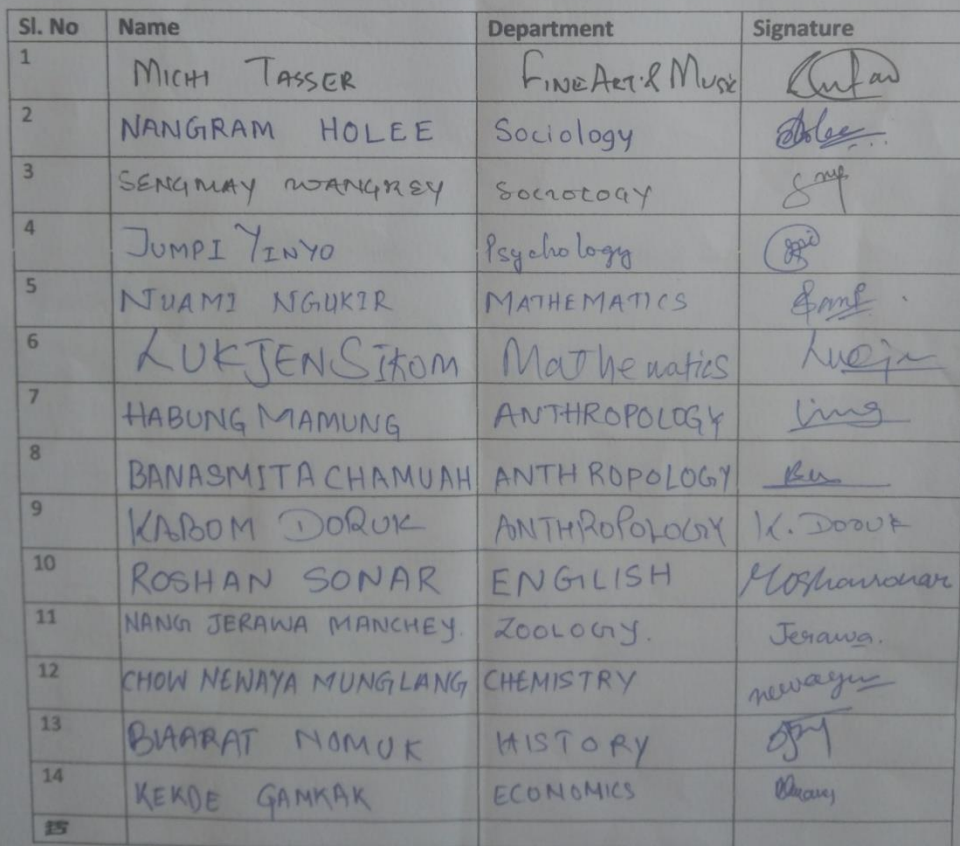 Sl. No Name Department Signature
1 MICHI TASSER FINE ART & MUSIC
2 NANGRAM HOLEE Sociology Holee
3 SENGMAY WANGREY SOCIOLOGY
4 JUMPI YINYO Psychology
5 NUAMI NGUKIR MATHEMATICS
6 LUKJEN SIKOM Mathematics
7 HABUNG MAMUNG ANTHROPOLOGY
8 BANASMITA CHAMUAH ANTHROPOLOGY
9 KABOM DORUK ANTHROPOLOGY K. DORUK
10 ROSHAN SONAR ENGILISH Roshansonar
11 NANG JERAWA MANCHEY. ZOOLOGY. Jerawa.
12 CHOW NEWAYA MUNGLANG CHEMISTRY newaya
13 BHARAT NOMUK HISTORY
14 KEKDE GAMKAK ECONOMICS